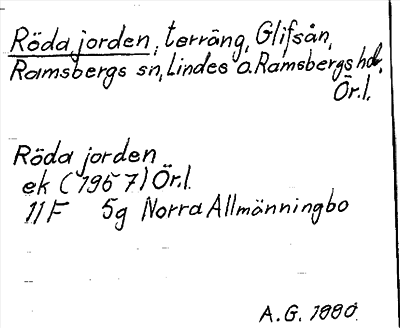 Röda jorden, terräng, Glifsån,
Ramsbergs sn, Lindes o. Ramsbergs hd,
Ör.l.
Röda jorden
ek (1957) Ör.l.
11F 5g Norra Allmänningbo
A.G. 1990.